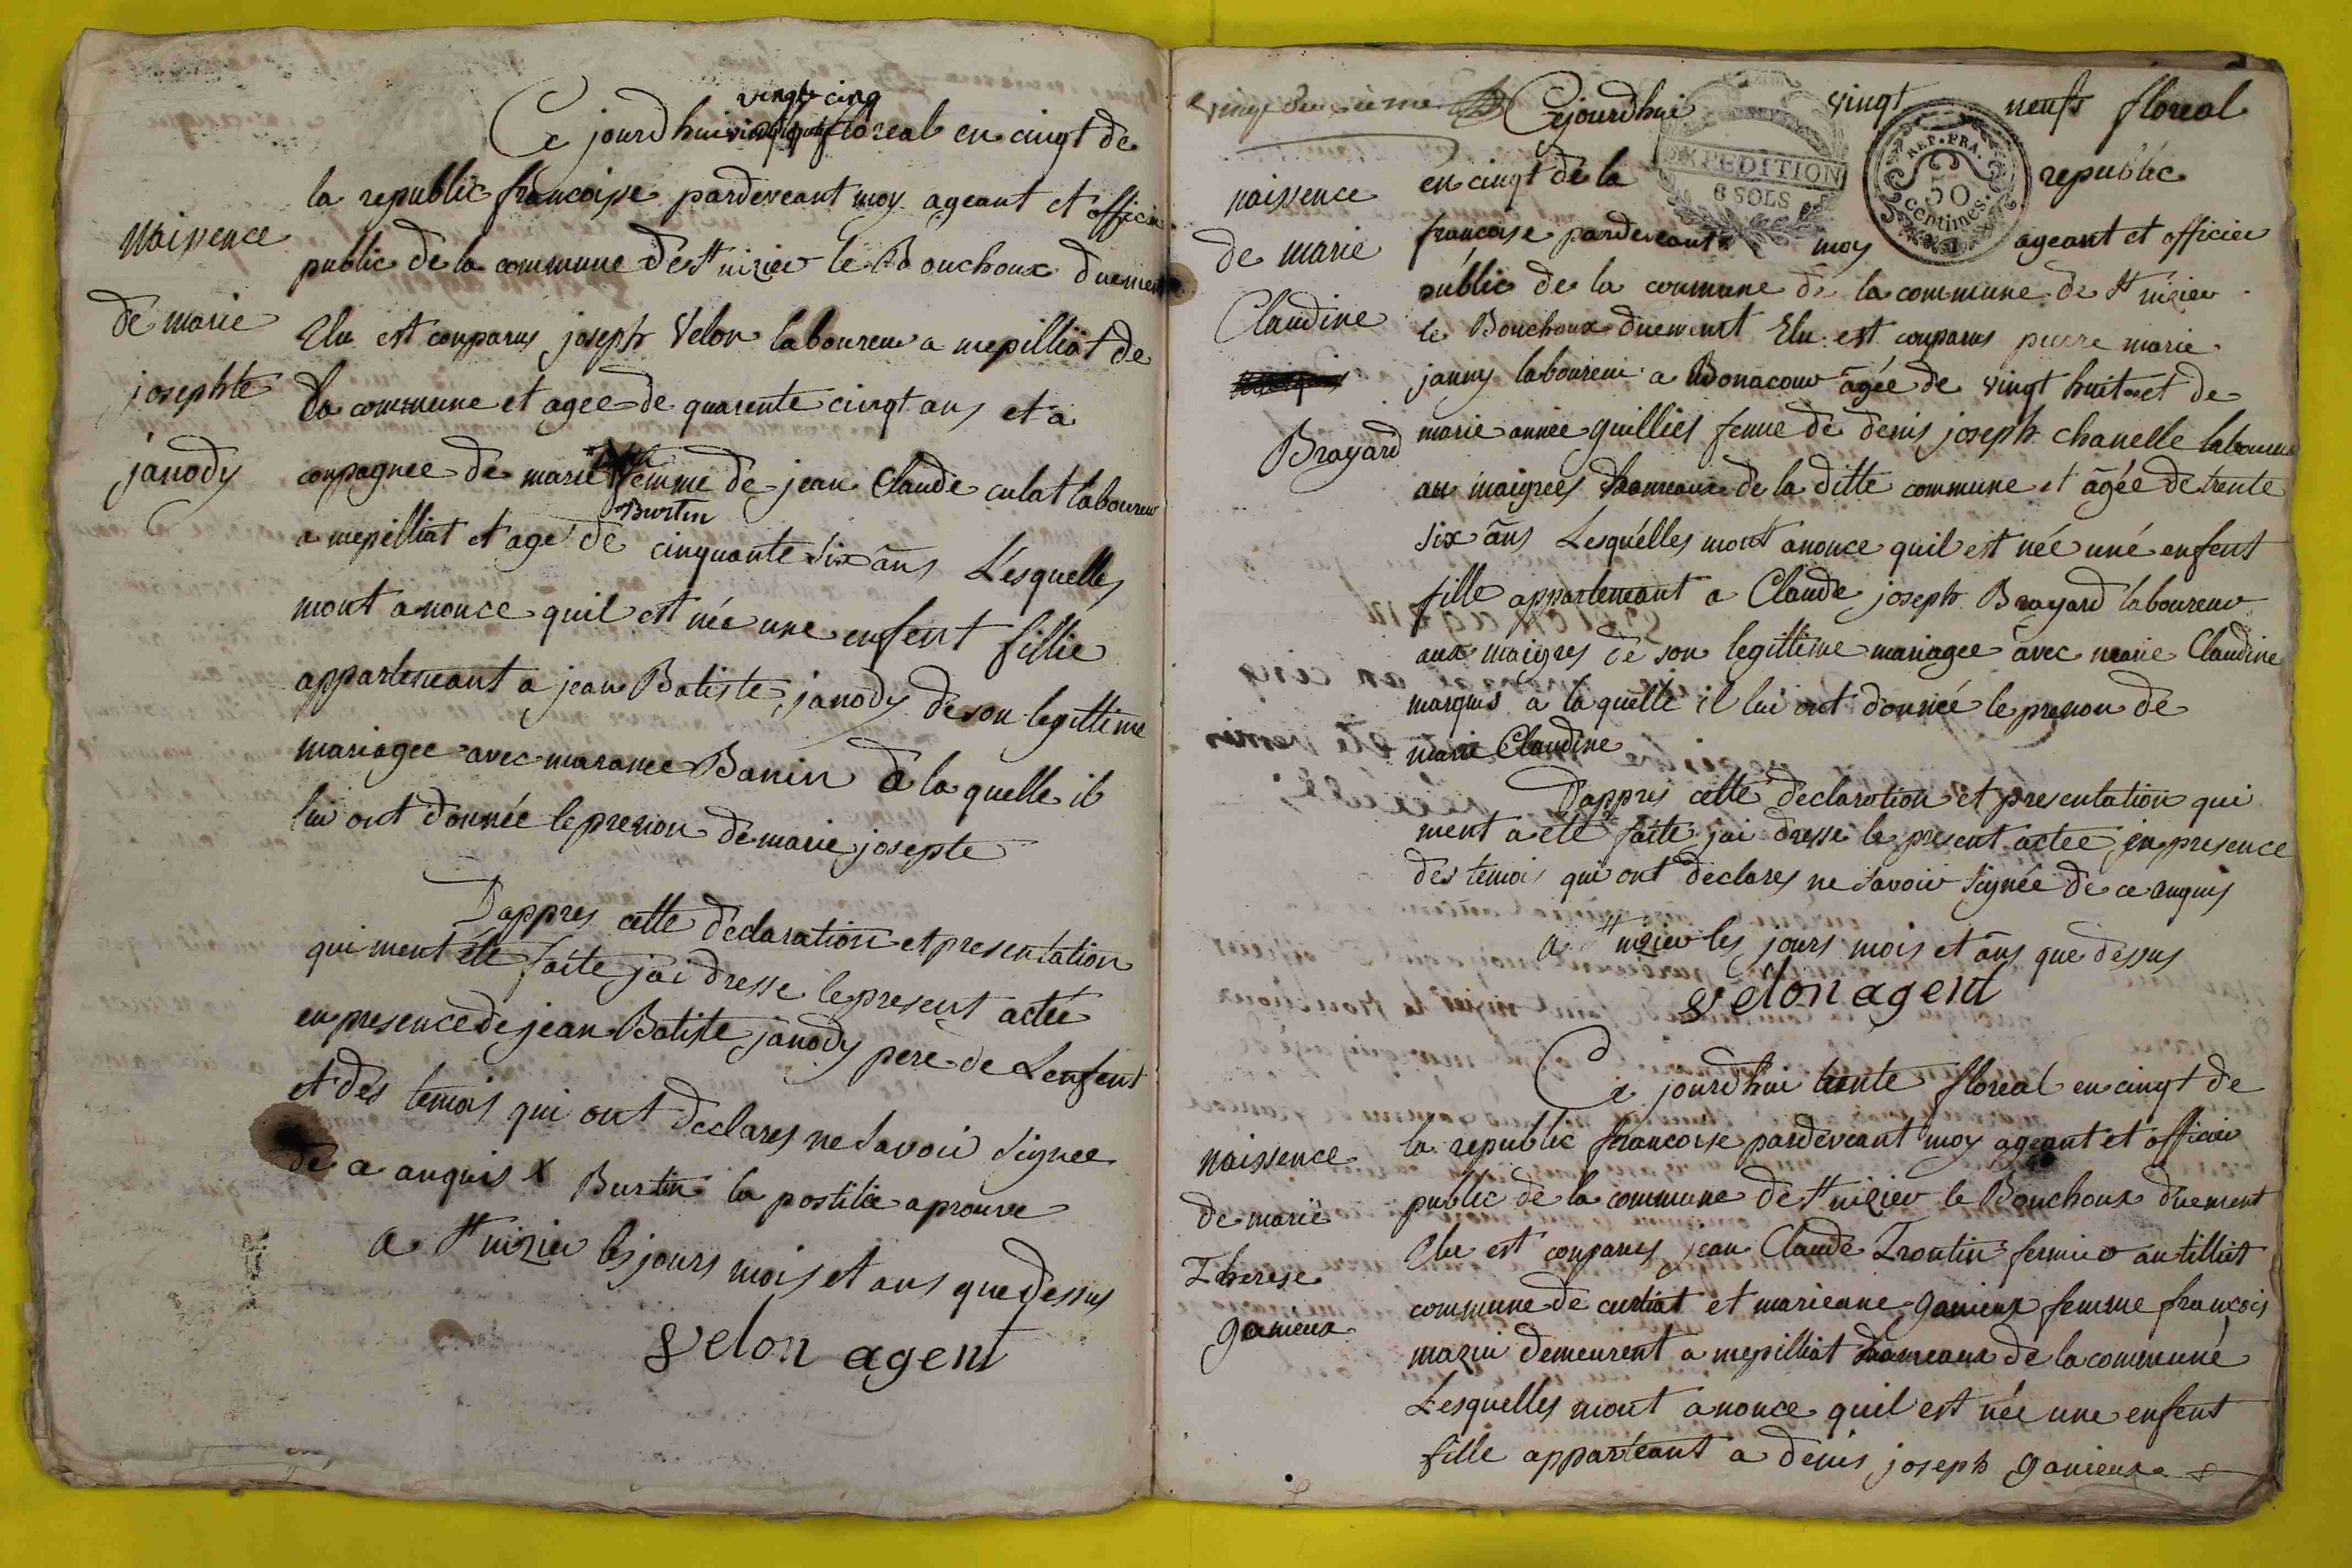 vingt cinq
Ce jourdhui floreal en cinqt de
la republic francoise pardeveant moy ageant et officier
public de la commune de St nizier le Bouchoux duement
Elu est conparus joseph Velon laboureur a mepilliat de
la commune et agee de quarente cinqt ans et a
conpagnee de marie femme de jean Claude culat laboureur
Burtin
a mepilliat et agé de cinquante six ans Lesquelles
mont anonce quil est née une enfent fillie
apparteneant a jean Batiste janody de son legittime
mariagee avec marianee Banin a la quelle il
lui ont donnée le prenon de marie josepte
Dappres cette declaration et presentation
qui ment été faite jai dresse le present actée
en presence de jean Batiste janody pere de Lenfent
et des temois qui ont declares ne savoir signee
de a anquis x Burtin la postilie aprouve
a St nizier les jours mois et ans que dessus
velon agent
Naissence
de marie
josephte
janody
vingt deuxieme
Cejourdhui vingt neuft floreal
en cinqt de la republic
francoise pardeveant moy ageant et officier
public de la commune de la commune de St nizier
le Bouchoux duement Elu est conparus pierre marie
janny laboureur a Bonacour âgée de vingt huit et de
marie année guilliet femme de denis joseph chanelle laboureur
au maigres hameaux de la ditte commune et âgée de trente
six âns Lesquélles mont anonce quil est née uné enfent
fille apparteneant a Claude joseph Brayard laboureur
aux maigres de son legittime mariagee avec marie Claudine
marquis a laquelle il lui ont donnée le prenon de
marie Claudine
Dappres cette declarotion et presentation qui
ment a ete faite jai dresse le present actee en presence
des temois qui ont declares ne savoir signée de ce anquis
a St nizier les jours mois et âns que dessus
velon agent
naissence
de marie
Claudine
Brayard
EXPEDITION
6 SOLS
REP. FRA.
50
centimes.
Ce jourdhui trente floreal en cinqt de
la republic francoise pardeveant moy ageant et officier
public de la commune de St nizier le Bouchoux duement
Elu est conparus jean Claude Trontin fermier au tilliat
commune de curtiat et marieane ganieux femme francois
mazui demeurent a mepilliat hameaux de la communé
Lesquelles mont anonce quil est née une enfent
fille apparteant a denis joseph ganieux
naissence
de marie
Therese
ganieux